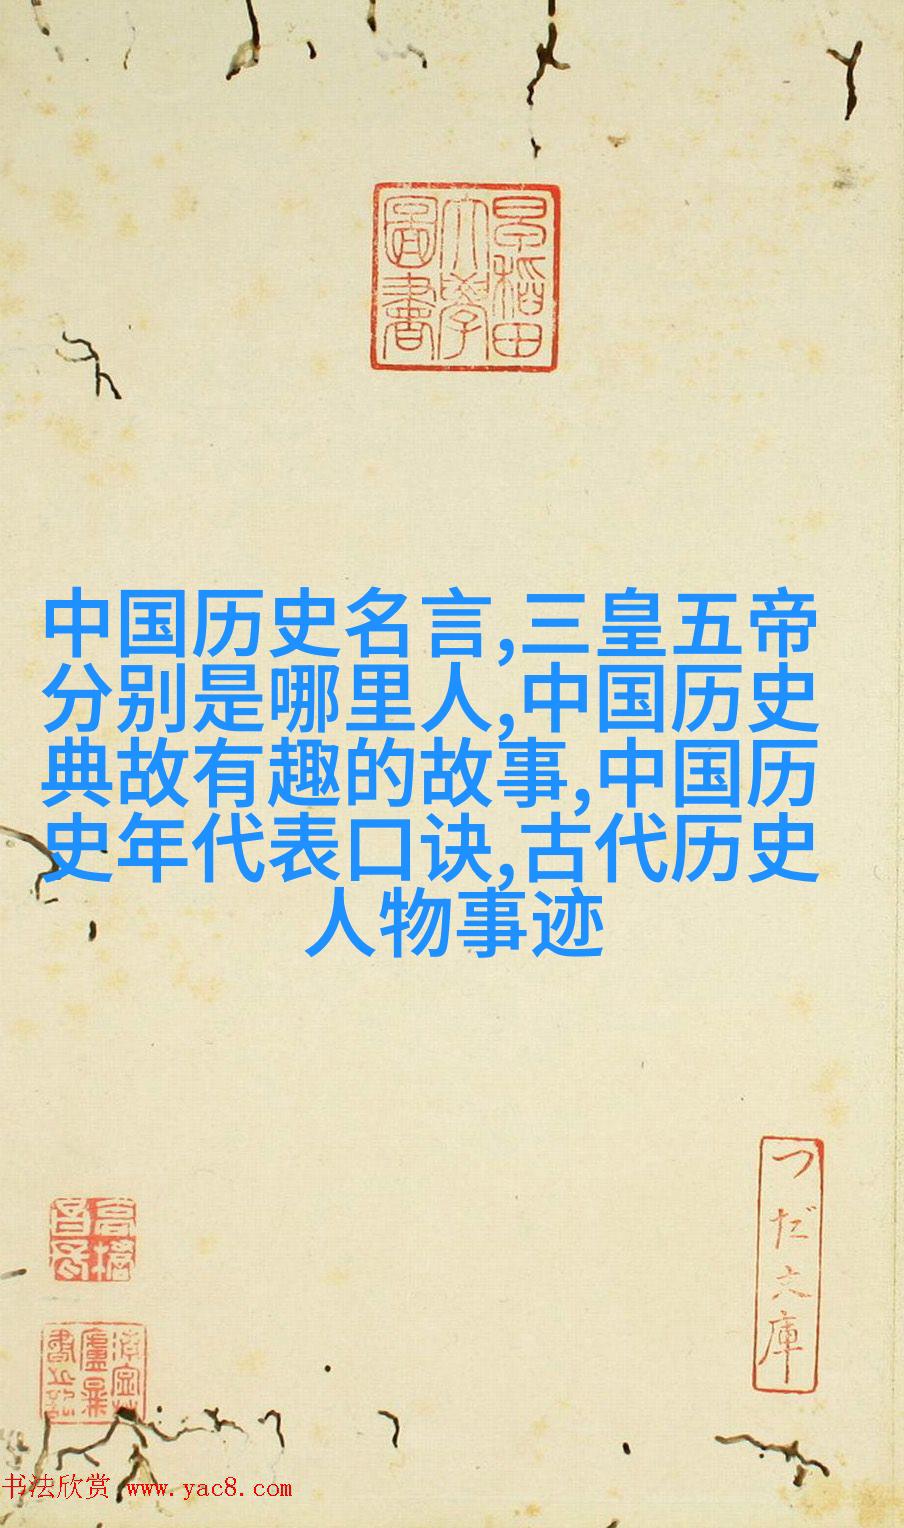 早稻田
大學
圖書
中国历史名言,三皇五帝
分别是哪里人,中国历史
典故有趣的故事,中国历
史年代表口诀,古代历史
人物事迹
つだ文庫
书法欣赏 www.yac8.com